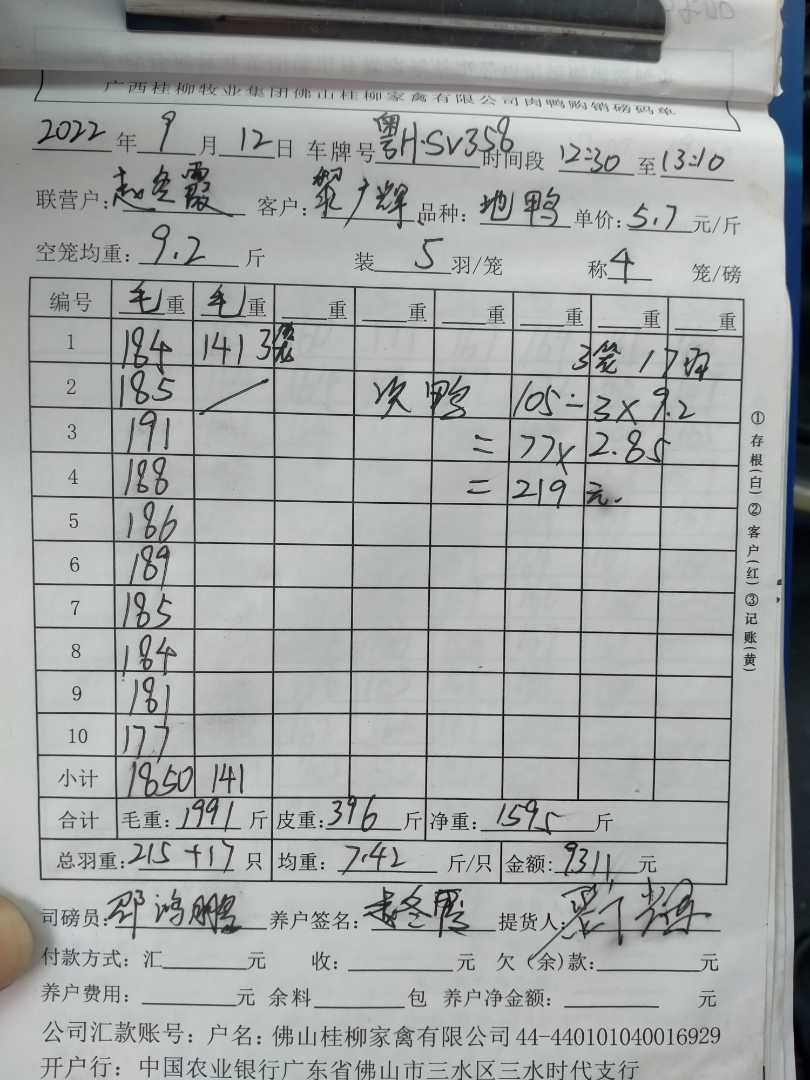 广西桂柳牧业集团佛山桂柳家禽有限公司肉鸭购销磅码单
2022年 9月 12日 车牌号 粤H·SV358 时间段 12:30 至 13:10
联营户: 赵冬霞 客户: 黎广辉 品种: 地鸭 单价: 5.7 元/斤
空笼均重: 9.2 斤 装 5 羽/笼 称 4 笼/磅
编号 毛重 毛重 重 重 重 重 重 重
1 184 141 3笼 3笼 17
2 185 次鸭 105-3×9.2
3 191 =77×2.85
4 188 =219元.
5 186
6 189
7 185
8 184
9 181
10 177
小计 1850 141
合计 毛重: 1991 斤 皮重: 396 斤 净重: 1595 斤
总羽重: 215+17 只 均重: 7.42 斤/只 金额: 9311 元
司磅员: 邵鸿鹏 养户签名: 赵冬霞 提货人:
付款方式: 汇 元 收: 元 欠(余)款: 元
养户费用: 元 余料 包 养户净金额: 元
公司汇款账号: 户名: 佛山桂柳家禽有限公司 44-440101040016929
开户行: 中国农业银行广东省佛山市三水区三水时代支行
①存根(白)②客户(红)③记账(黄)